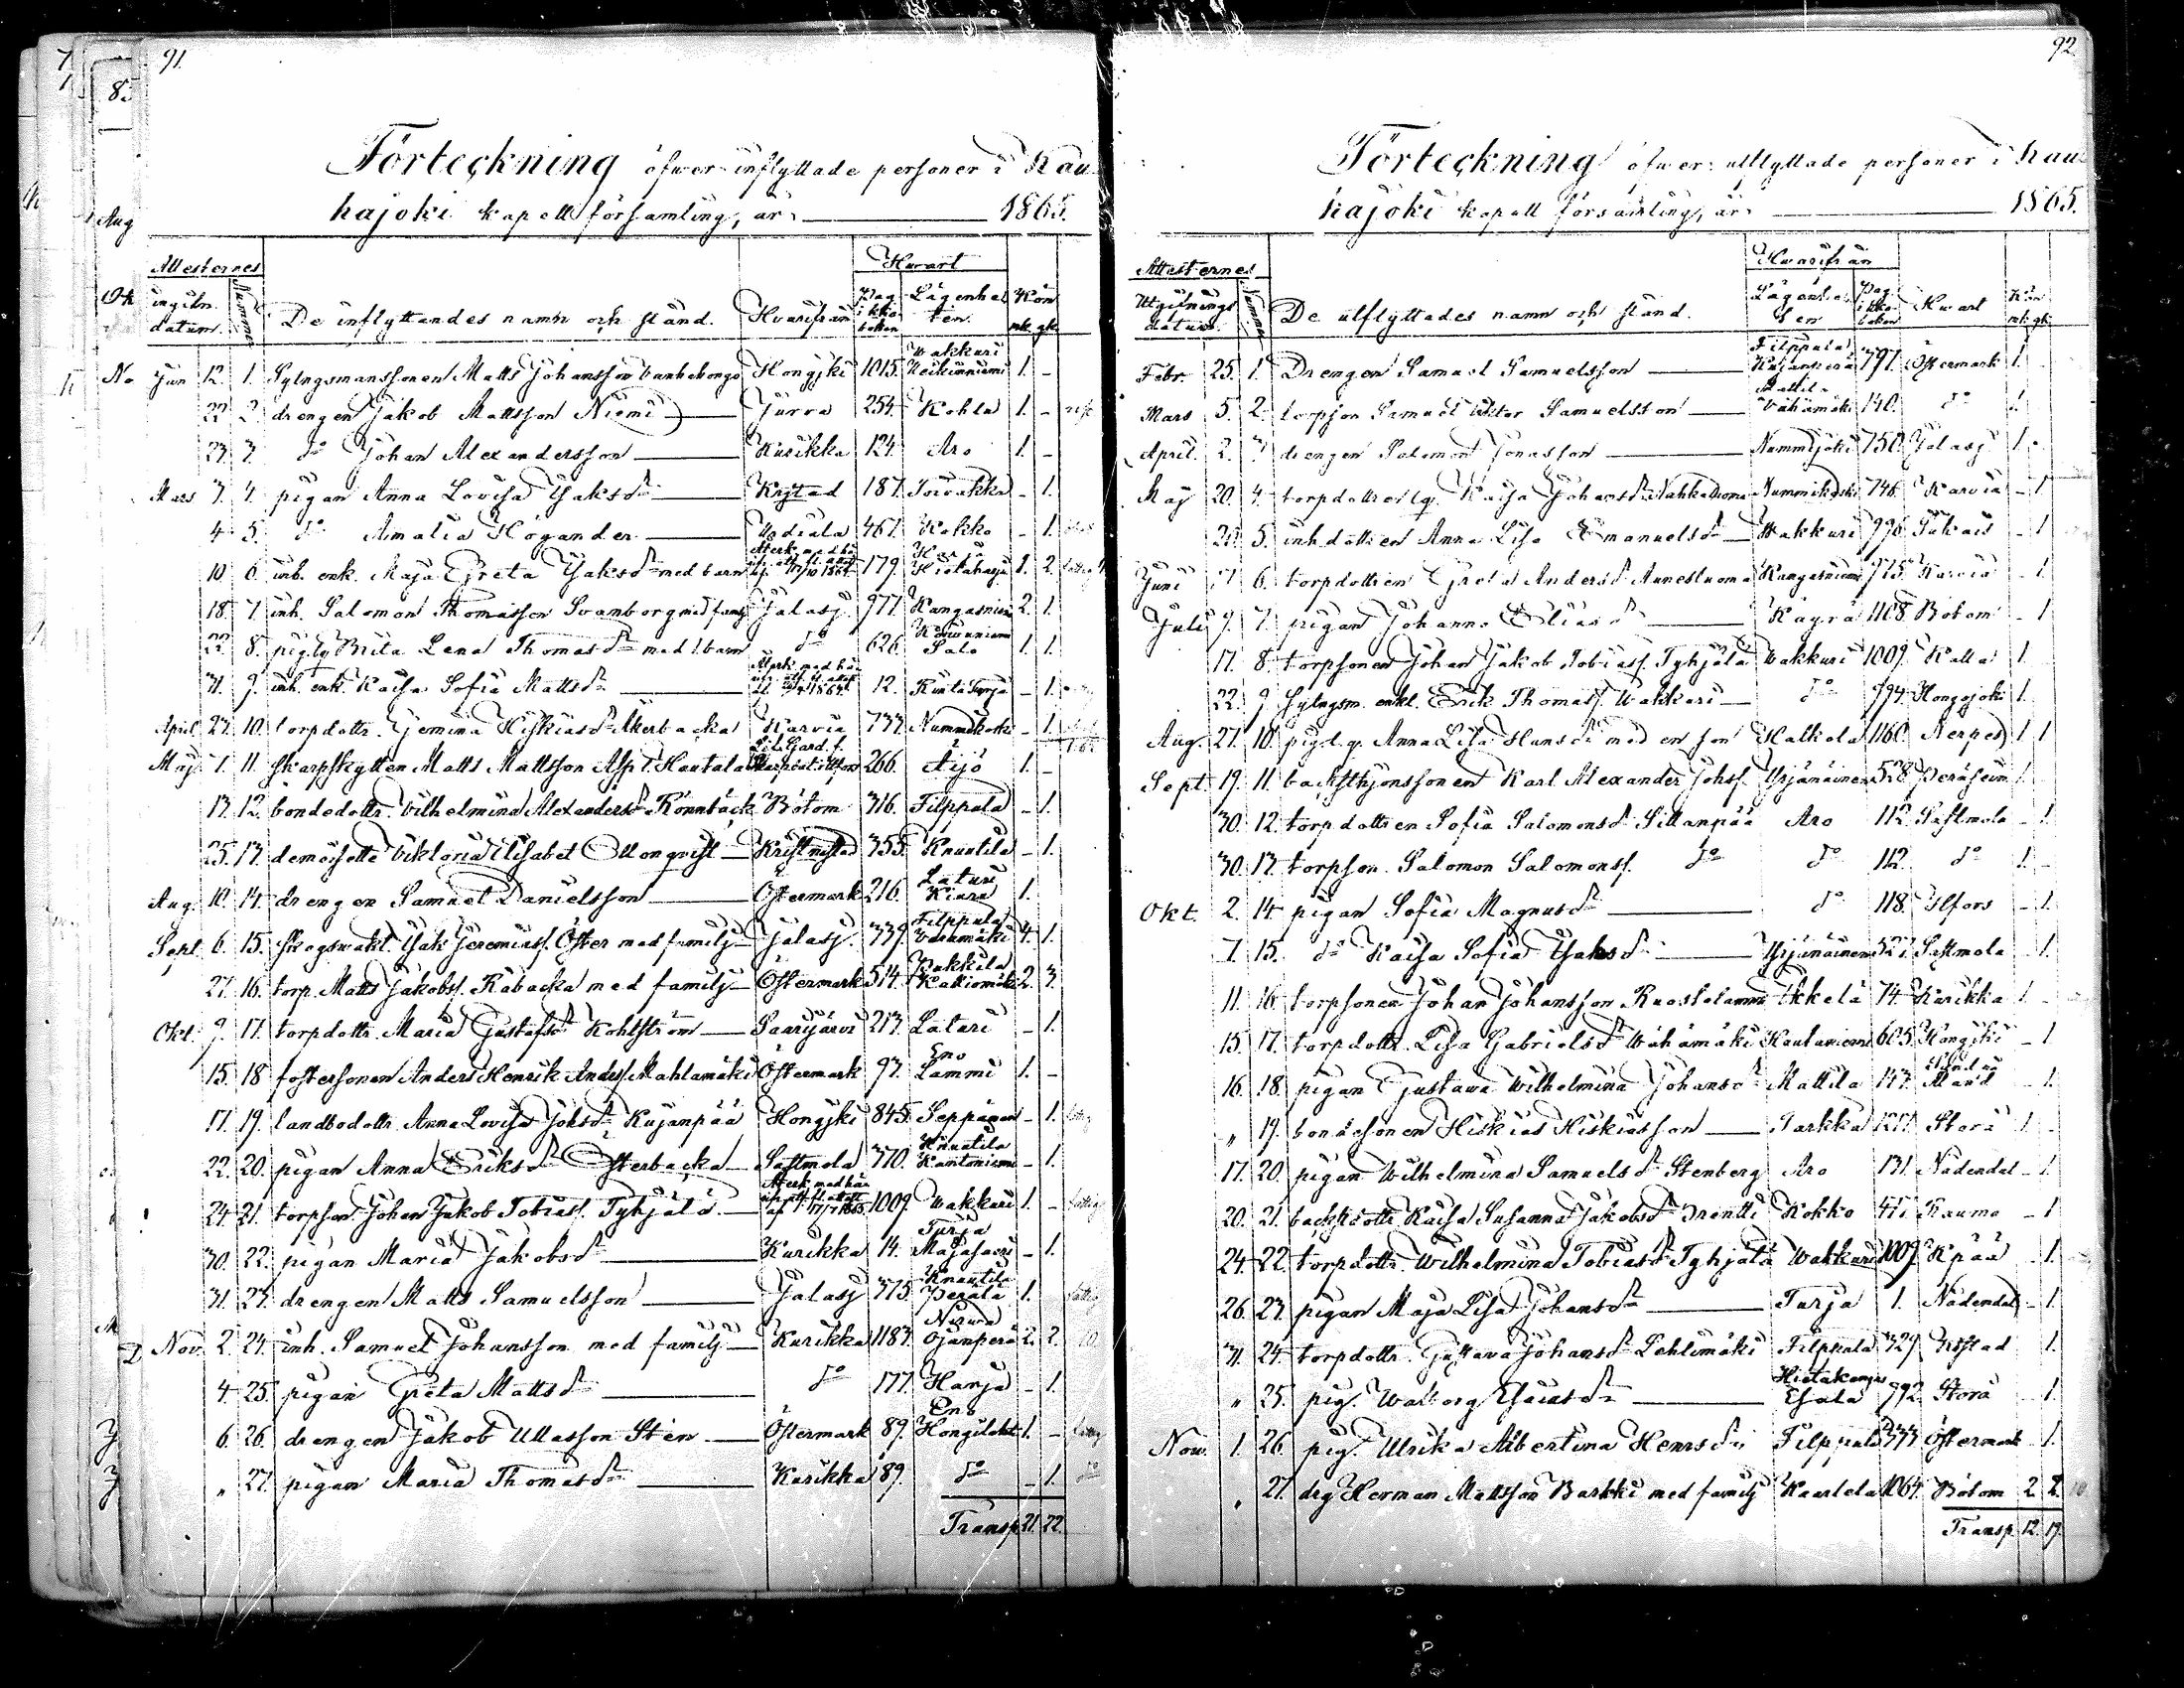 91.
Förteckning öfwer inflyttade personer i Kau-
hajoki kapell församling, år 1865.
Attesternes
ingifn. datum. Numme De inflyttandes namn och stånd. Hvarifrån Hwart Pag. i k.ko boken Lägenheten Kön mk. qk.
Jan 12. 1. Matts Johansson Hongjki 1015. Wakkuri 1. -
22 2. drengen Jakob Mattsson Niemi Jurva 254. Kohla 1. -
23. 3. do Johan Alexandersson Kurikka 124. Aro 1. -
Mars 3. 4. pigan Anna Lovisa Isaksdr 187. - 1.
4 5. do Amalia Högander Wodiala 467. Kokko - 1.
10 6. inh. enk. Maja Greta Isaksdr med barn 179. 1. 2.
18. 7. inh. Salomon Thomasson Svanborg med famj Jalasj. 977. Kangasniemi 2. 1.
22 8. Brita Lena Thomasdr med 1 barn do 626. Salo 1. 1.
31. 9. inh. enk. Kaisa Sofia Mattsdr 12. - 1.
April 23. 10. torpdottr. Jemina Hiskiasdr Åkerbacka Karvia 733. Nummikoski - 1.
Maj 1. 11. skarpskytten Matts Mattsson Asp l. Hautala 266. Äijö 1. -
13. 12. bondedottr. Vilhelmina Alexandersdr Rönnbäck Bötom 316. Filppula - 1.
25. 13. demoiselle Viktoria Elisabet Ollonqvist Kristinestad 355. Knuutila - 1.
Aug. 10. 14. drengen Samuel Danielsson Östermark 216. Laturi 1.
Sept 6. 15. skogswakt. Isak Jeremiass. Öster med familj Jalasj. 339. Filppula 4. 1.
27. 16. torp. Matts Jakobss. Råbacka med familj Östermark 514. Pukkila Kalliomäki 2. 3.
Okt. 9. 17. torpdottr. Maria Gustafsdr Kohlström Saarijärvi 213. Laturi - 1.
15. 18 fostersonen Anders Henrik Anderss. Mahlamäki Östermark 97. Eno Lammi 1. -
17. 19. landbodottr. Anna Lovisa Johsdr Kujanpää Hongjki 845. Seppänen - 1.
22. 20. pigan Anna Eriksdr Österbacka Sastmola 770. Knuutila Kantoniemi - 1.
24. 21. torpson. Johan Jakob Tobiass. Tyhjälä 1009. Wakkuri 1. -
30. 22. pigan Maria Jakobsdr Kurikka 14. Turja Majasaari - 1.
31. 23. drengen Matts Samuelsson Jalasj 375. Knuutila Perälä 1.
Nov. 2. 24. inh. Samuel Johansson med familj Kurikka 1183. Ojanperä 2. 2.
4. 25. pigan Greta Mattsdr do 177. Harja - 1.
6. 26. drengen Jakob Ullasson Sten Östermark 89. Eno 1. -
„ 27. pigan Maria Thomasdr Kurikka 89. do - 1.
Transp. 21. 22.
92.
Förteckning öfwer utflyttade personer i Kau-
hajoki kapell församling, år 1865.
Attesternes
Utgifnings datum. De utflyttades namn och stånd. Hvarifrån Lägenheten Pag. i k.ko boken Hwart Kön mk. qk.
Febr. 25. 1. Drengen Samuel Samuelsson Filppula Kujanperä 791. Östermark 1.
Mars 5. 2. torpson Samuel Viktor Samuelsson Mattila Vähämäki 140. do 1.
April. 2. 3 drengen Salomon Jonasson Nummijoki 750. Jalasj 1 -
Maj 20. 4. Kaisa Johansdr Nahkaluoma Nummikoski 746. Karvia - 1
5. inh.dottren Anna Lisa Emanuelsdr Wakkuri 990. - 1
Juni 6. torpdottren Greta Andersdr Aunesluoma Kangasniemi 975. Karvia - 1.
Juli 9. 7. pigan Johanna Eliasdr Kayrä 1108. Bötom - 1
17. 8. torpsonen Johan Jakob Tobiass. Tyhjälä Wakkuri 1009. 1
22. 9. Erik Thomass. Wakkuri do 994. Hongojoki 1.
Aug. 27. 10. Anna Lisa Hansdr med en son Halkola 1160. Nerpes 1 1
Sept. 19. 11. Karl Alexander Johss. Yrjänäinen 528. 1.
30. 12. torpdottren Sofia Salomonsdr Sillanpää Aro 112. Sastmola - 1.
30. 13. torpson. Salomon Salomonss. do do 112. do 1. -
Okt. 2. 14. pigan Sofia Magnusdr do 118. Ilfors - 1.
7. 15. do Kaisa Sofia Isaksdr Yrjänäinen 527. Sastmola - 1.
11. 16. torpsonen Johan Johansson Ikkelä 74. Kurikka 1. -
15. 17. torpdottr. Lisa Gabrielsdr Wähämäki Hautaniemi 605. Hongjki - 1
16. 18. pigan Gustawa Wilhelmina Johansdr Mattila 147. - 1.
„ 19. bondesonen Hiskias Hiskiasson Tarkka Storå 1 -
17. 20. pigan Wilhelmina Samuelsdr Stenberg Aro 131. Nådendal - 1.
20. 21. Kaisa Susanna Jakobsdr Kokko Raumo - 1
24. 22. torpdottr. Wilhelmina Tobiasdr Tyhjälä Wakkuri 1009. Kpää - 1.
26. 23. pigan Maja Lisa Johansdr Turja 1. Nådendal - 1.
31. 24. torpdottr. Gustava Johansdr Lehtimäki Filppula 329. 1.
„ 25. pig. Walborg Esaiasdr Hietakangas Esala 792. Storå - 1.
Nov. 1. 26. pig. Ulrika Albertina Henrsdr Filppula 333 Östermark - 1.
„ 27. drg Herman Mattsson Barkki med familj Kaarlela 1064. Bötom 2. 2.
Transp. 12. 19.